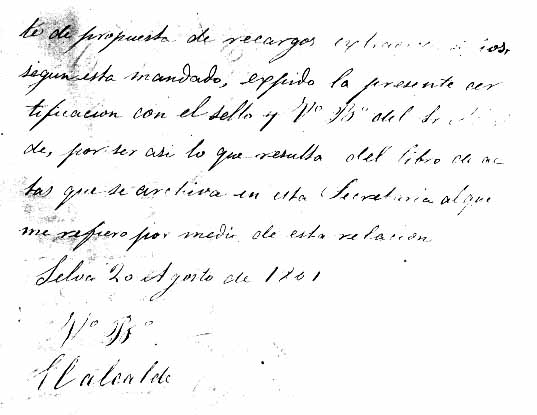 te de propuesta de recargos
segun esta mandado, expido la presente cer
tificacion con el sello y Vº Bº del Sr
de, por ser asi lo que resulta del libro de ac
tas que se archiva en esta Secretaria al que
me refiero por medio de esta relacion
Selva 20 Agosto de 1801
Vº Bº
El alcalde